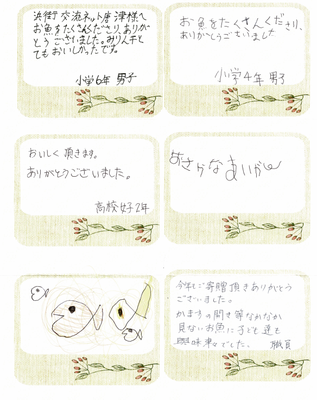 浜街交流ネット唐津様へ
お魚をたくさんくださり、ありが
とうございました。みりん干と
てもおいしかったです。
小学6年 男子
お魚をたくさんくださり、
ありがとうございました
小学4年 男子
おいしく頂きます。
ありがとうございました。
高校女子2年
おさかな
今年もご寄贈頂きありがとう
ございました。
かますの開き等なかなか
見ないお魚に子ども達も
興味津々でした。 職員